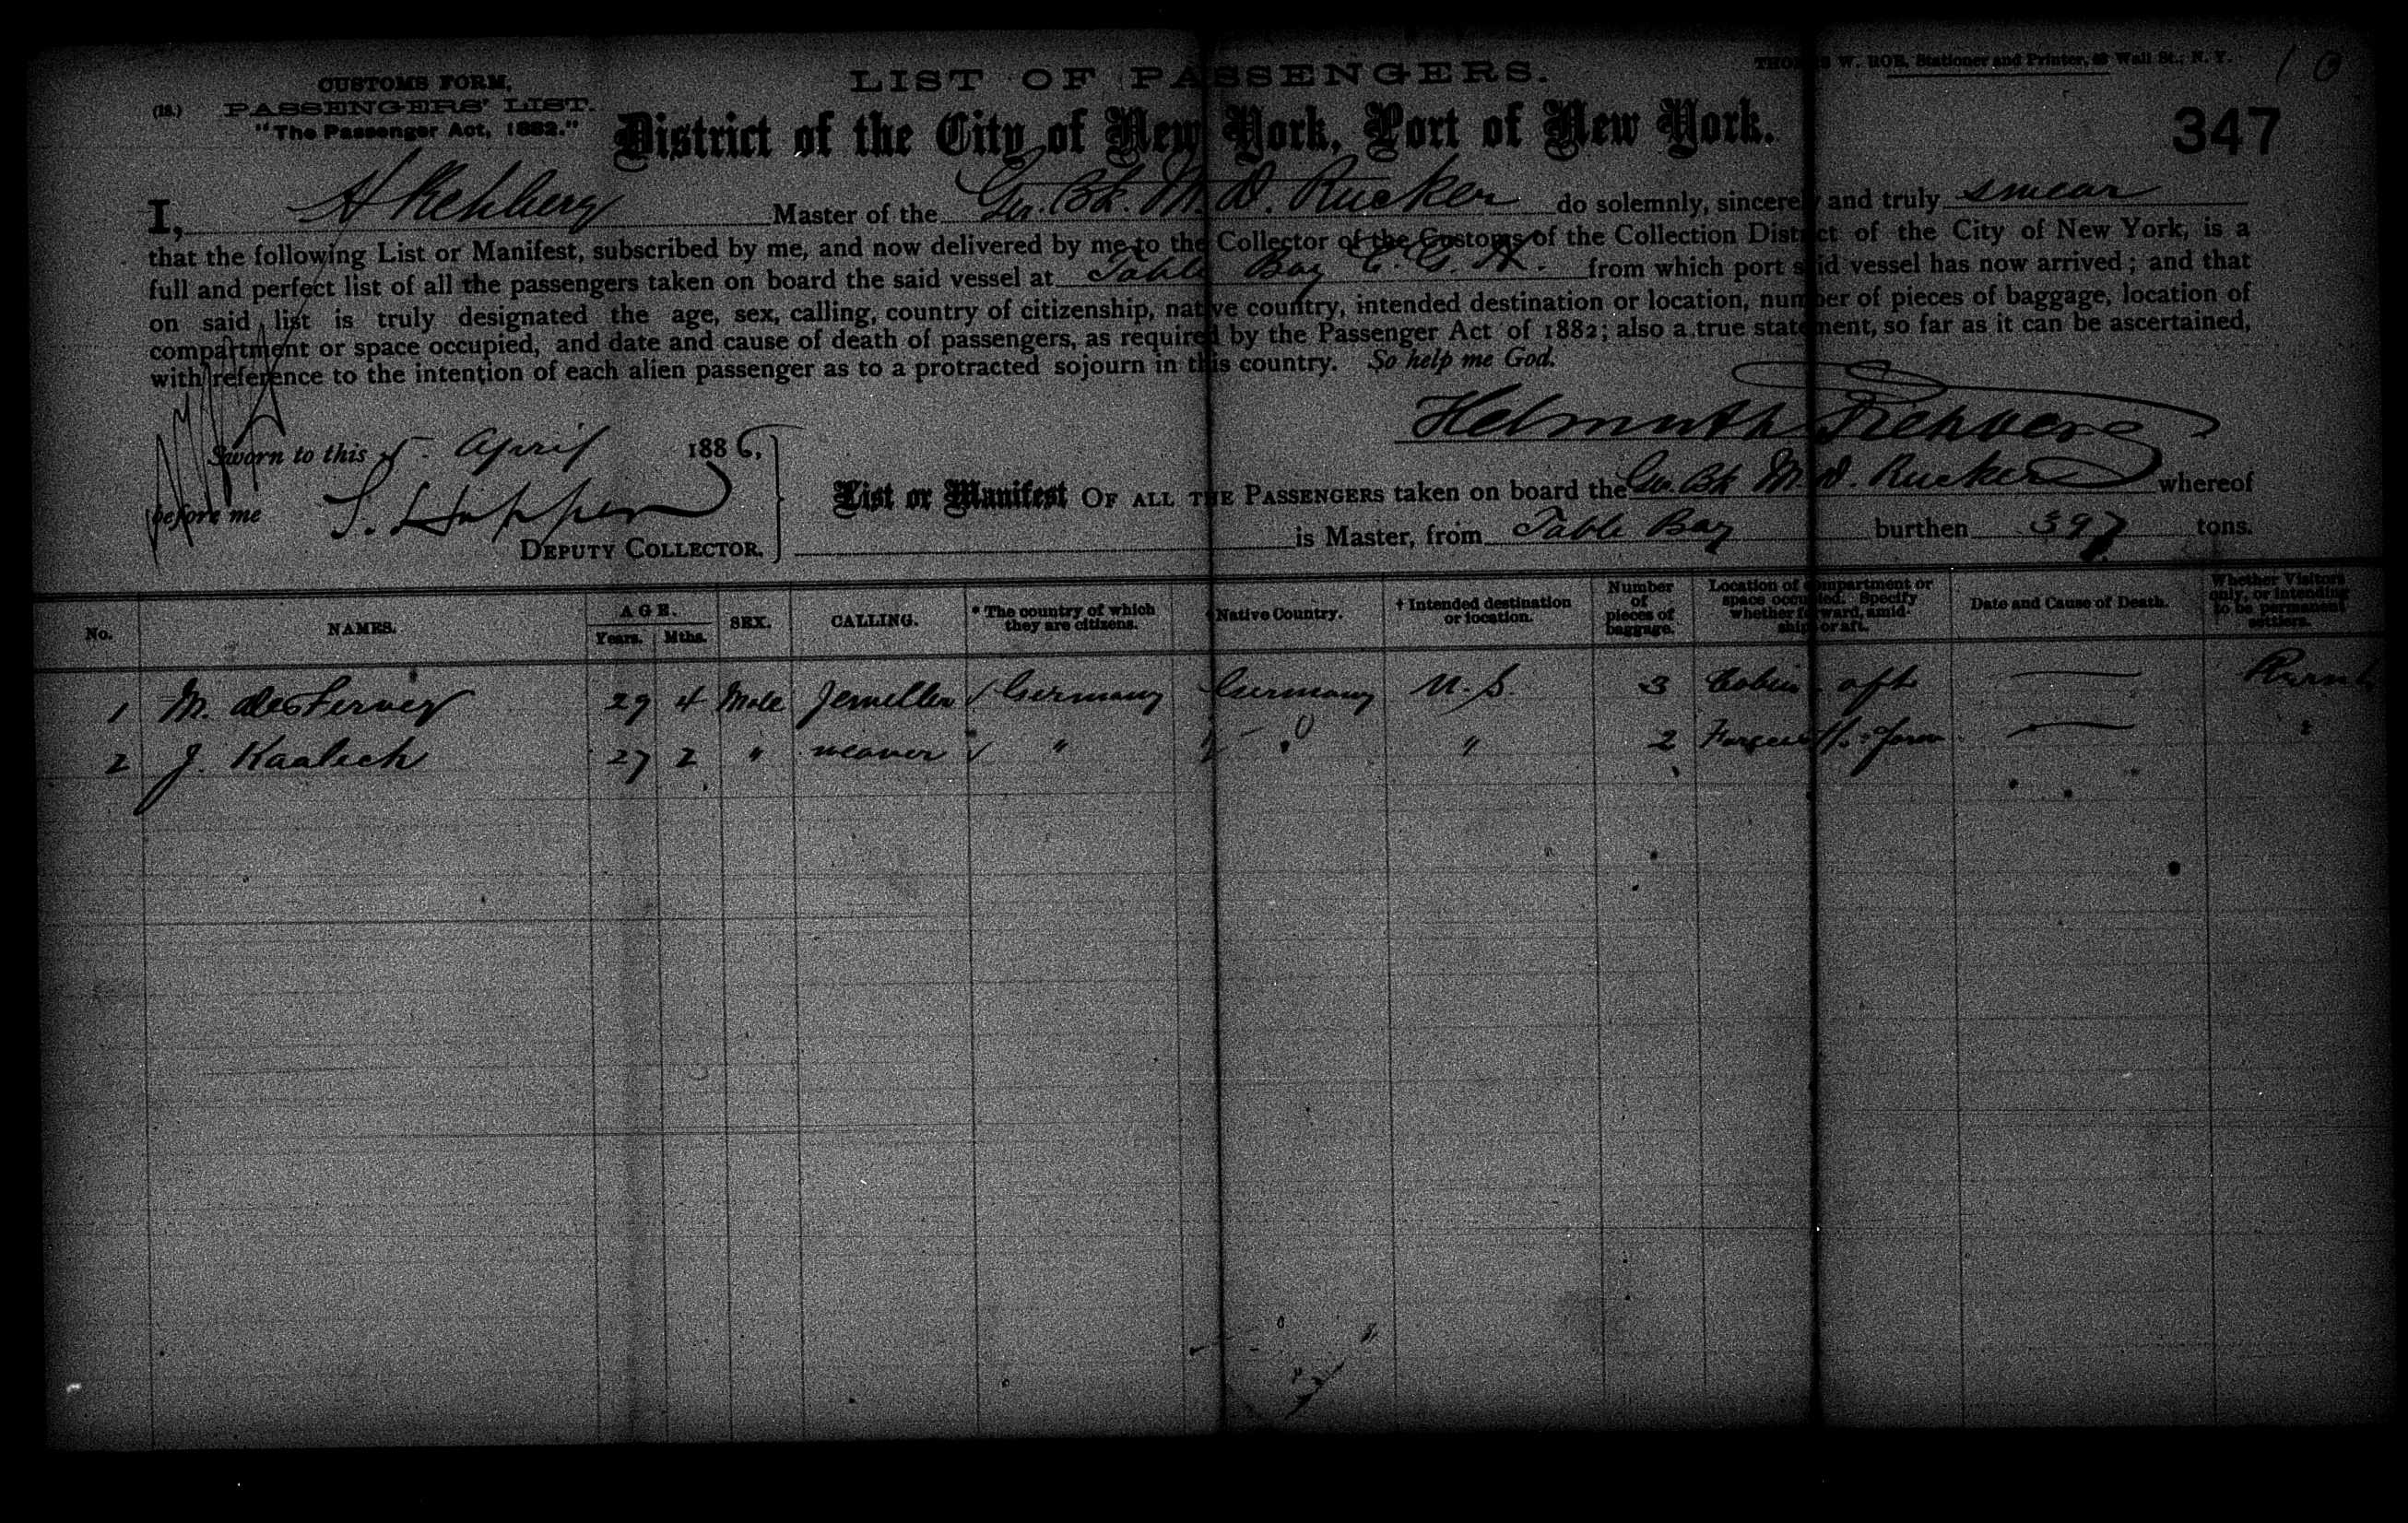 CUSTOMS FORM,
(18.) PASSENGERS' LIST.
"The Passenger Act, 1882."
LIST OF PASSENGERS.
THOMAS W. ROE, Stationer and Printer, Wall St., N. Y.
10
District of the City of New York, Port of New York.
347
I, H Rehberg Master of the Gr. Bk. M. D. Rucker do solemnly, sincerely and truly swear
that the following List or Manifest, subscribed by me, and now delivered by me to the Collector of the Customs of the Collection District of the City of New York, is a
full and perfect list of all the passengers taken on board the said vessel at Table Bay C. G. H. from which port said vessel has now arrived; and that
on said list is truly designated the age, sex, calling, country of citizenship, native country, intended destination or location, number of pieces of baggage, location of
compartment or space occupied, and date and cause of death of passengers, as required by the Passenger Act of 1882; also a true statement, so far as it can be ascertained,
with reference to the intention of each alien passenger as to a protracted sojourn in this country. So help me God.
Helmuth Rehberg
Sworn to this 5. April 1886,
before me
DEPUTY COLLECTOR.
List or Manifest OF ALL THE PASSENGERS taken on board the Gr. Bk M. D. Rucker whereof
is Master, from Table Bay burthen 397 tons.
No. NAMES. AGE. Years. Mths. SEX. CALLING. * The country of which they are citizens. † Native Country. † Intended destination or location. Number of pieces of baggage. Location of compartment or space occupied. Specify whether forward, amidship or aft. Date and Cause of Death. Whether Visitors only, or intending to be permanent settlers.
1 M. 29 4 Male Jeweller √ Germany Germany U. S. 3 Cabin aft —
2 J. Kaalich 27 2 " weaver √ " " " 2 —